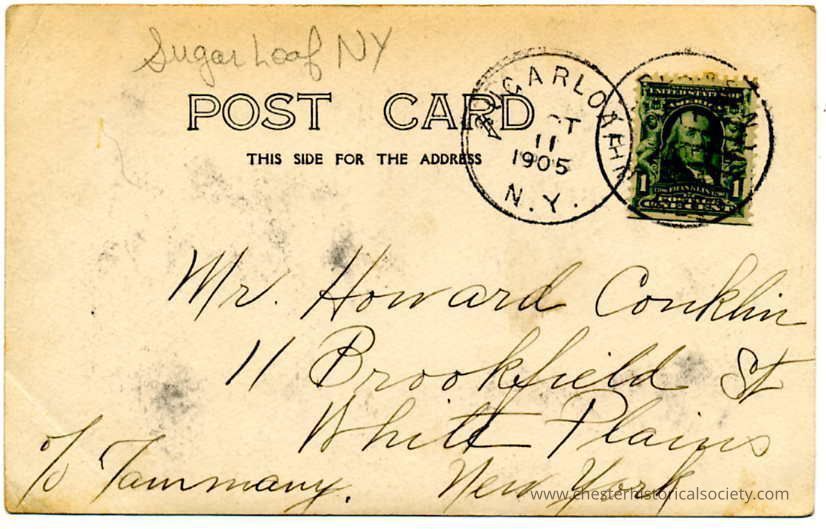 Sugar Loaf NY
POST CARD
THIS SIDE FOR THE ADDRESS
SUGARLOAF
OCT
11
1905
N.Y.
N.Y.
UNITED STATES OF
AMERICA
1 FRANKLIN 1
POSTAGE
ONE CENT
Mr. Howard Conklin
11 Brookfield St
White Plains
c/o Tammany. New York
www.chesterhistoricalsociety.com